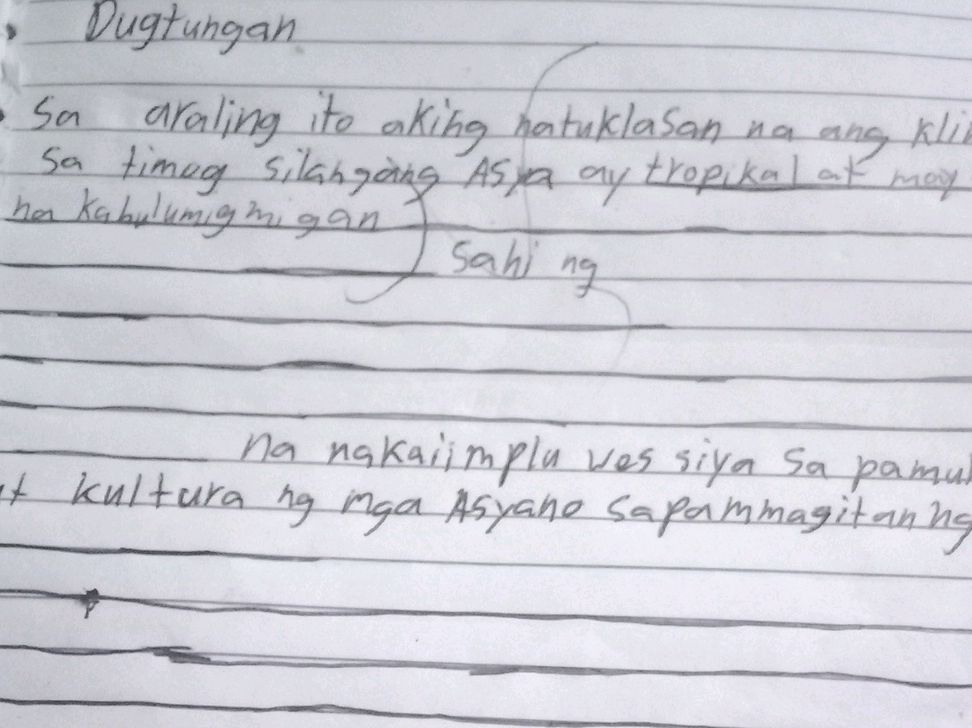 Dugtungan
Sa araling ito aking natuklasan na ang kli
Sa timog silangang Asya ay tropikal at may
na kahulumigmigan
sahi ng
na nakaiimpluwes siya sa pamu
at kultura ng mga Asyano sapammagitan ng